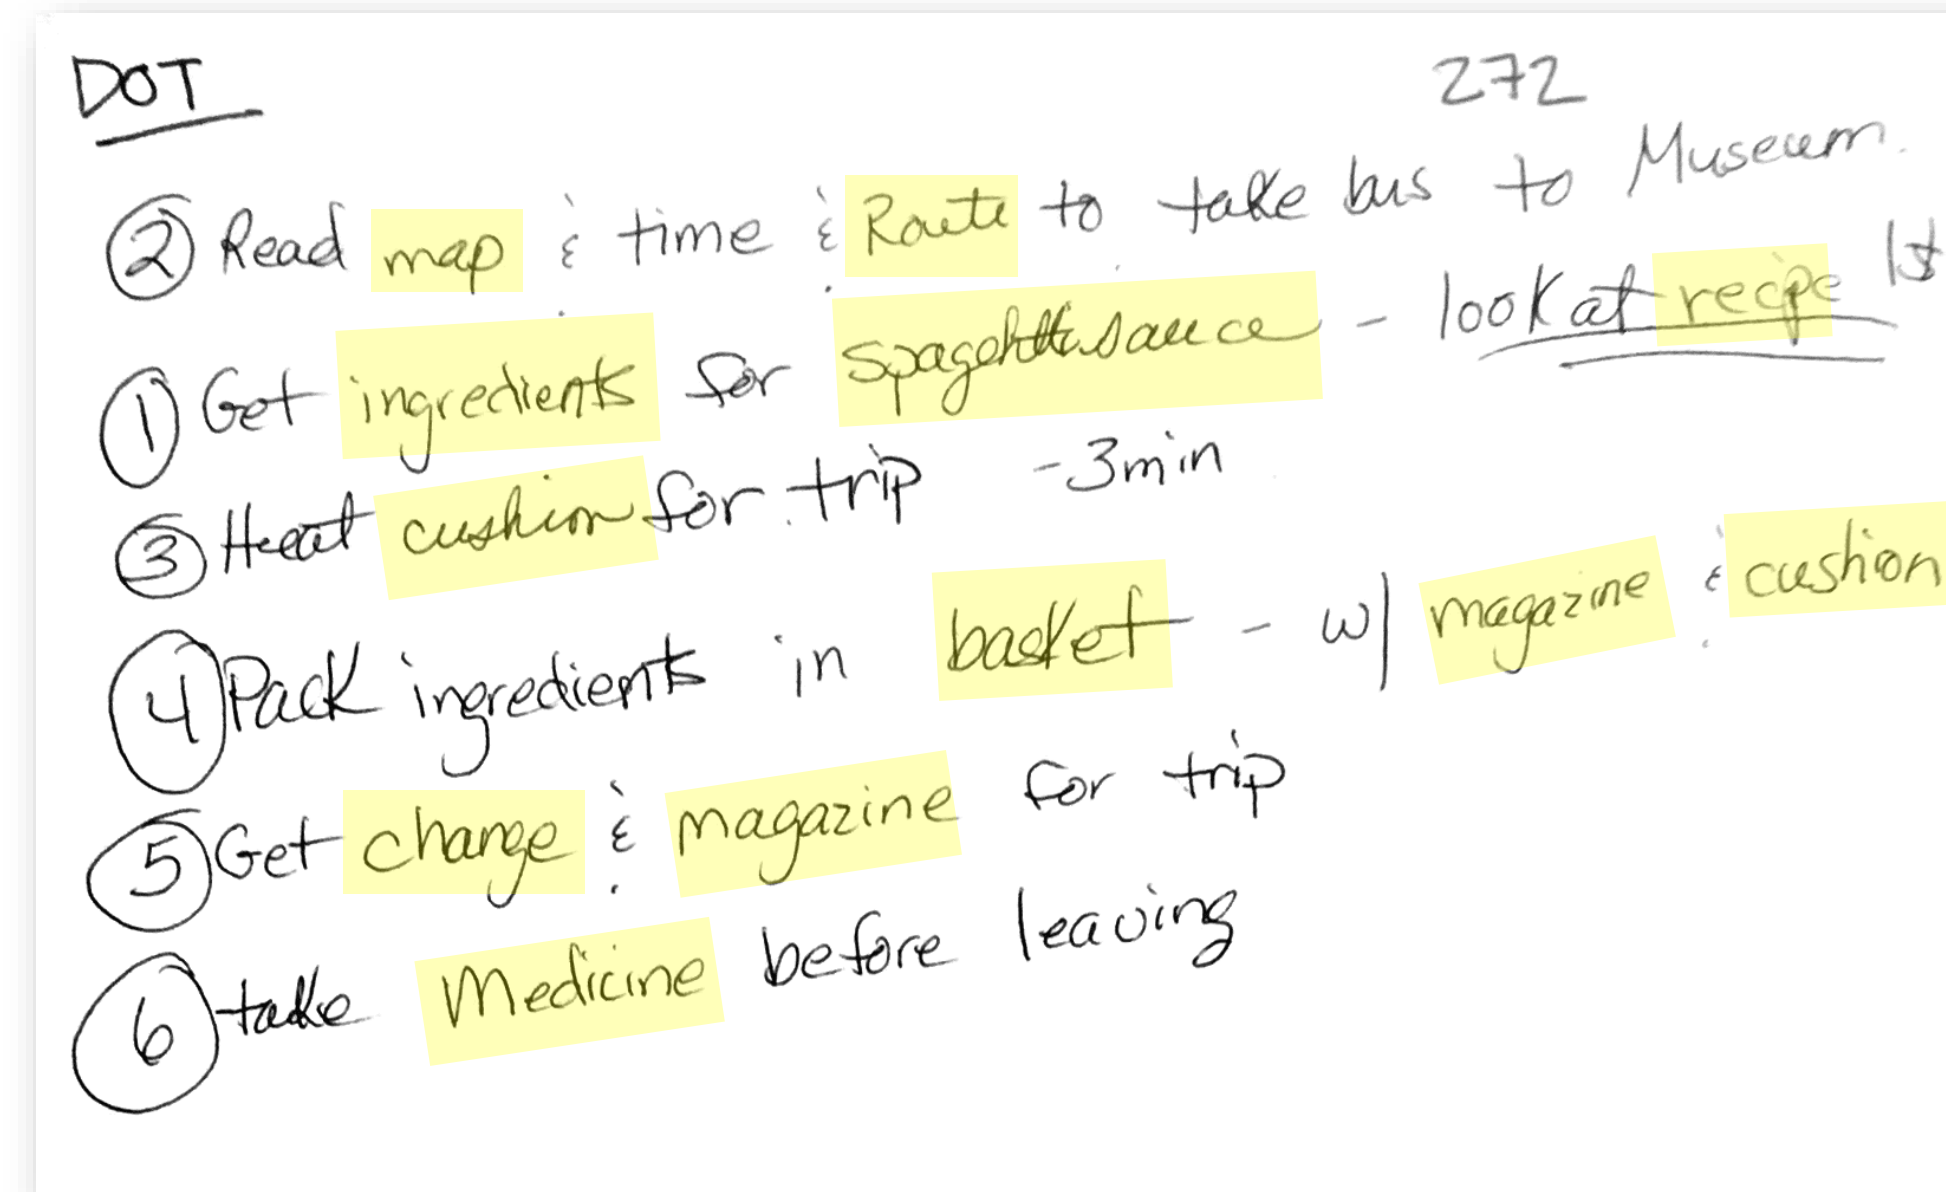 DOT
272
② Read map & time & Route to take bus to Museum.
① Get ingredients for spaghetti sauce - look at recipe 1st
③ Heat cushion for trip - 3min
④ Pack ingredients in basket - w/ magazine & cushion
⑤ Get change & magazine for trip
⑥ take Medicine before leaving